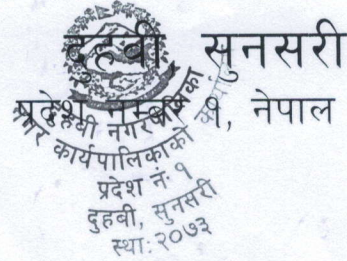 दुहबी सुनसरी
प्रदेश नम्बर १, नेपाल
दुहबी नगरपालिका
नगर कार्यपालिकाको कार्यालय
प्रदेश नं. १
दुहबी, सुनसरी
स्था: २०७३